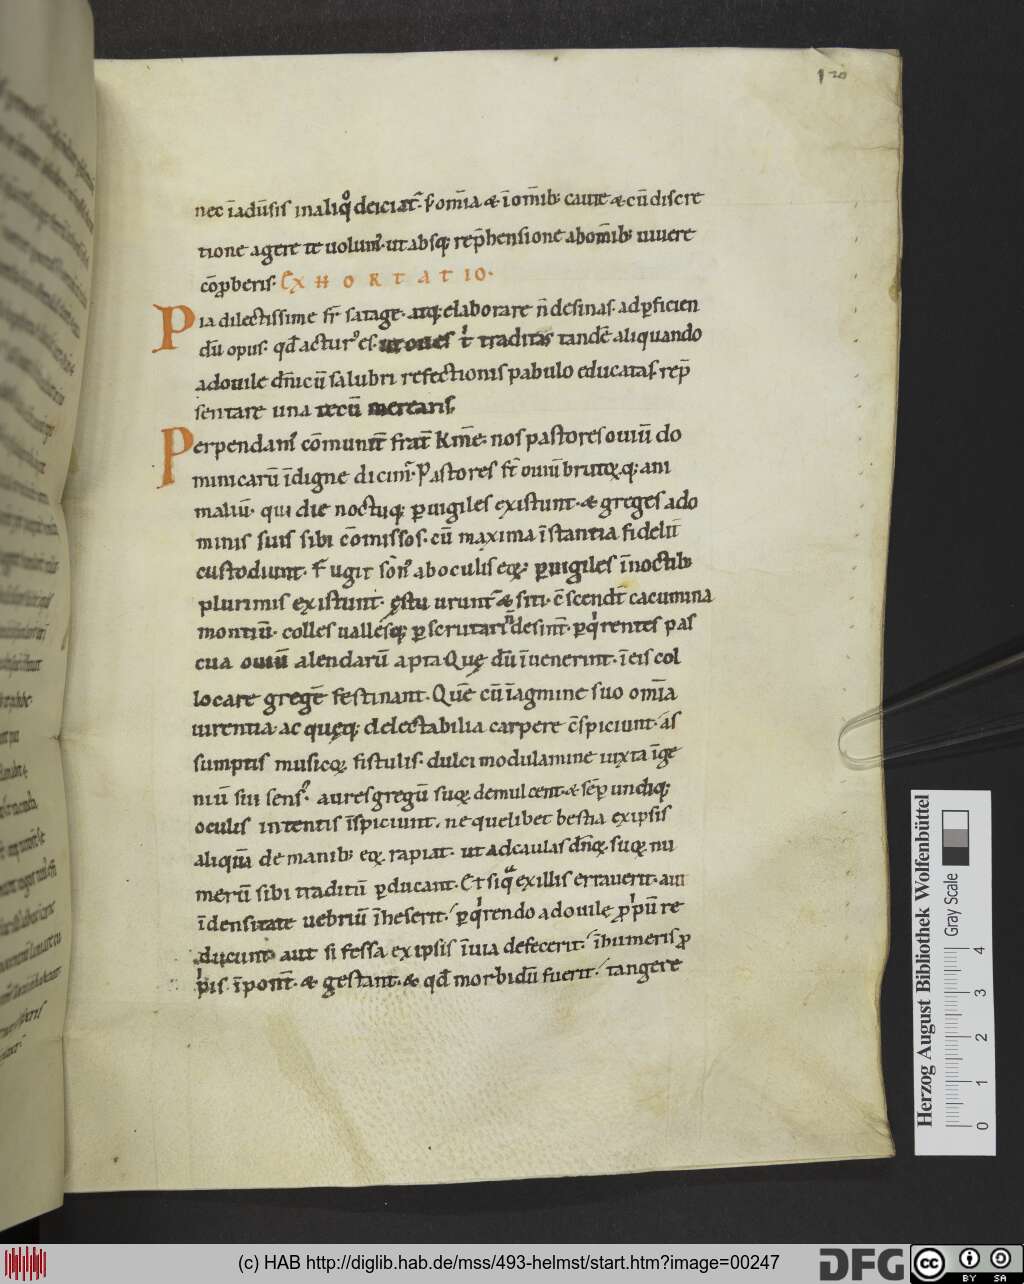 120
nec īadūsis in aliq̊ deiciat᷑. s; om̄ia & ī om̄ib; caute & cū discre
tione agere te uolum᷒. ut absq; rep̄hensione ab om̄ib; uiuere
cōp̱beris. EXHORTATIO.
Pia dilectissime fr̄ satage. atq; elaborare n̄ desinas. ad p̱ficien
dū opus. qđ actur᷒ es. ut oues t' traditas tandē aliquando
ad ouile dn̄icū salubri refectionis pabulo educatas. rep̄
sentare una tecū merearis.
Perpendam᷒ cōmunit̄ frat̄ kme. nos pastores ouiū do
minicarū īdigne dicim᷒. Pastores st̄ ouiū brutoꝝq; ani
maliū. qui die noctuq; p̱uigiles existunt. & greges ado
minis suis sibi cōmissos. cū maxima īstantia fidelit̄
custodiunt. Fugit son᷒ ab oculis eoꝝ. p̱uigiles ī noctib;
plurimis existunt. ęstu urunt᷑ & siti. c̄scendt̄ cacumina
montiū. colles uallesq; p̱scrutari n̄ desin̄t. p̱q'rentes pas
cua ouiū alendarū apta. Quę dū īuenerint. ī eis col
locare gregē festinant. Quē cū ī agmine suo om̄ia
uirentia. ac quęq; delectabilia carpere c̄spiciunt. as
sumptis musicoꝝ fistulis. dulci modulamine iuxta īge
niū sui sens᷒. aures gregū suoꝝ demulcent. & sēp̱ undiq;
oculis intentis īspiciunt. ne quelibet bestia ex ipsis
aliquā de manib; eoꝝ rapiat. ut ad caulas dn̄oꝝ suoꝝ nu
merū sibi traditū p̱ducant. Et siqͣ ex illis errauerit. aut
ī densitate uebriū īheserit. p̱q'rendo ad ouile p̱p'ū re
ducunt. aut si fessa ex ipsis ī uia defecerit. ī humeris p̱
p'is īpon̄t. & gestant. & qđ morbidū fuerit. tangere
Herzog August Bibliothek Wolfenbüttel
Gray Scale
0 1 2 3 4
(c) HAB http://diglib.hab.de/mss/493-helmst/start.htm?image=00247
DFG
cc BY SA